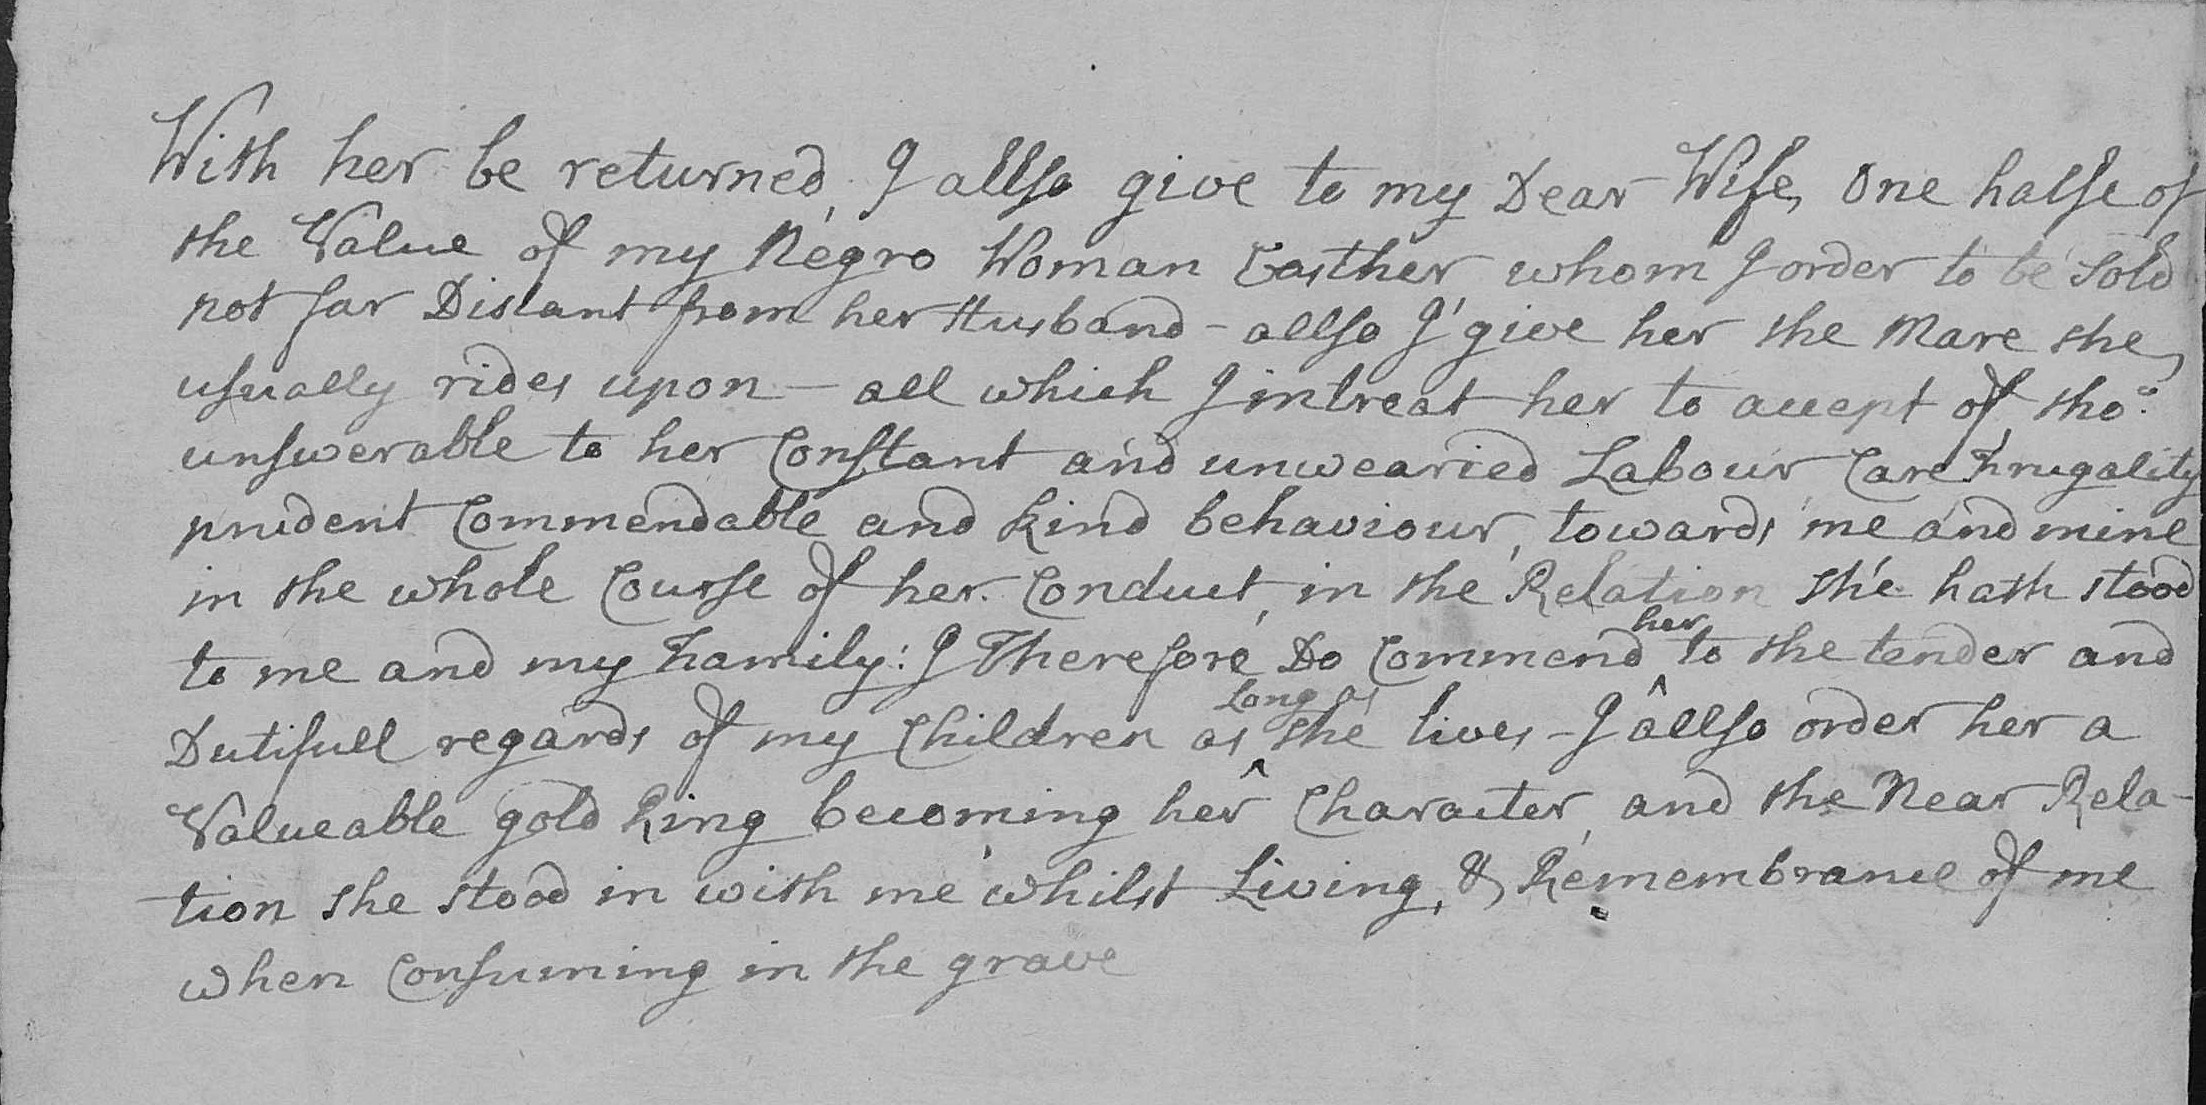 With her be returned, I allso give to my Dear Wife, One halfe of
the Value of my Negro Woman Easther whom I order to be sold
not far Distant from her Husband - allso I give her the Mare she
usually rides upon - all which I intreat her to accept of, tho:
unswerable to her Constant and unwearied Labour Care Frugality
prudent Commendable and kind behaviour, towards me and mine
in the whole Course of her Conduct, in the Relation she hath stood
to me and my Family: I Therefore Do Commend her to the tender and
Dutifull regards of my Children as Long as she lives - I allso order her a
Valueable gold Ring becoming her Character, and the Near Rela-
tion she stood in with me whilst Living, & Remembrance of me
when Consuming in the grave